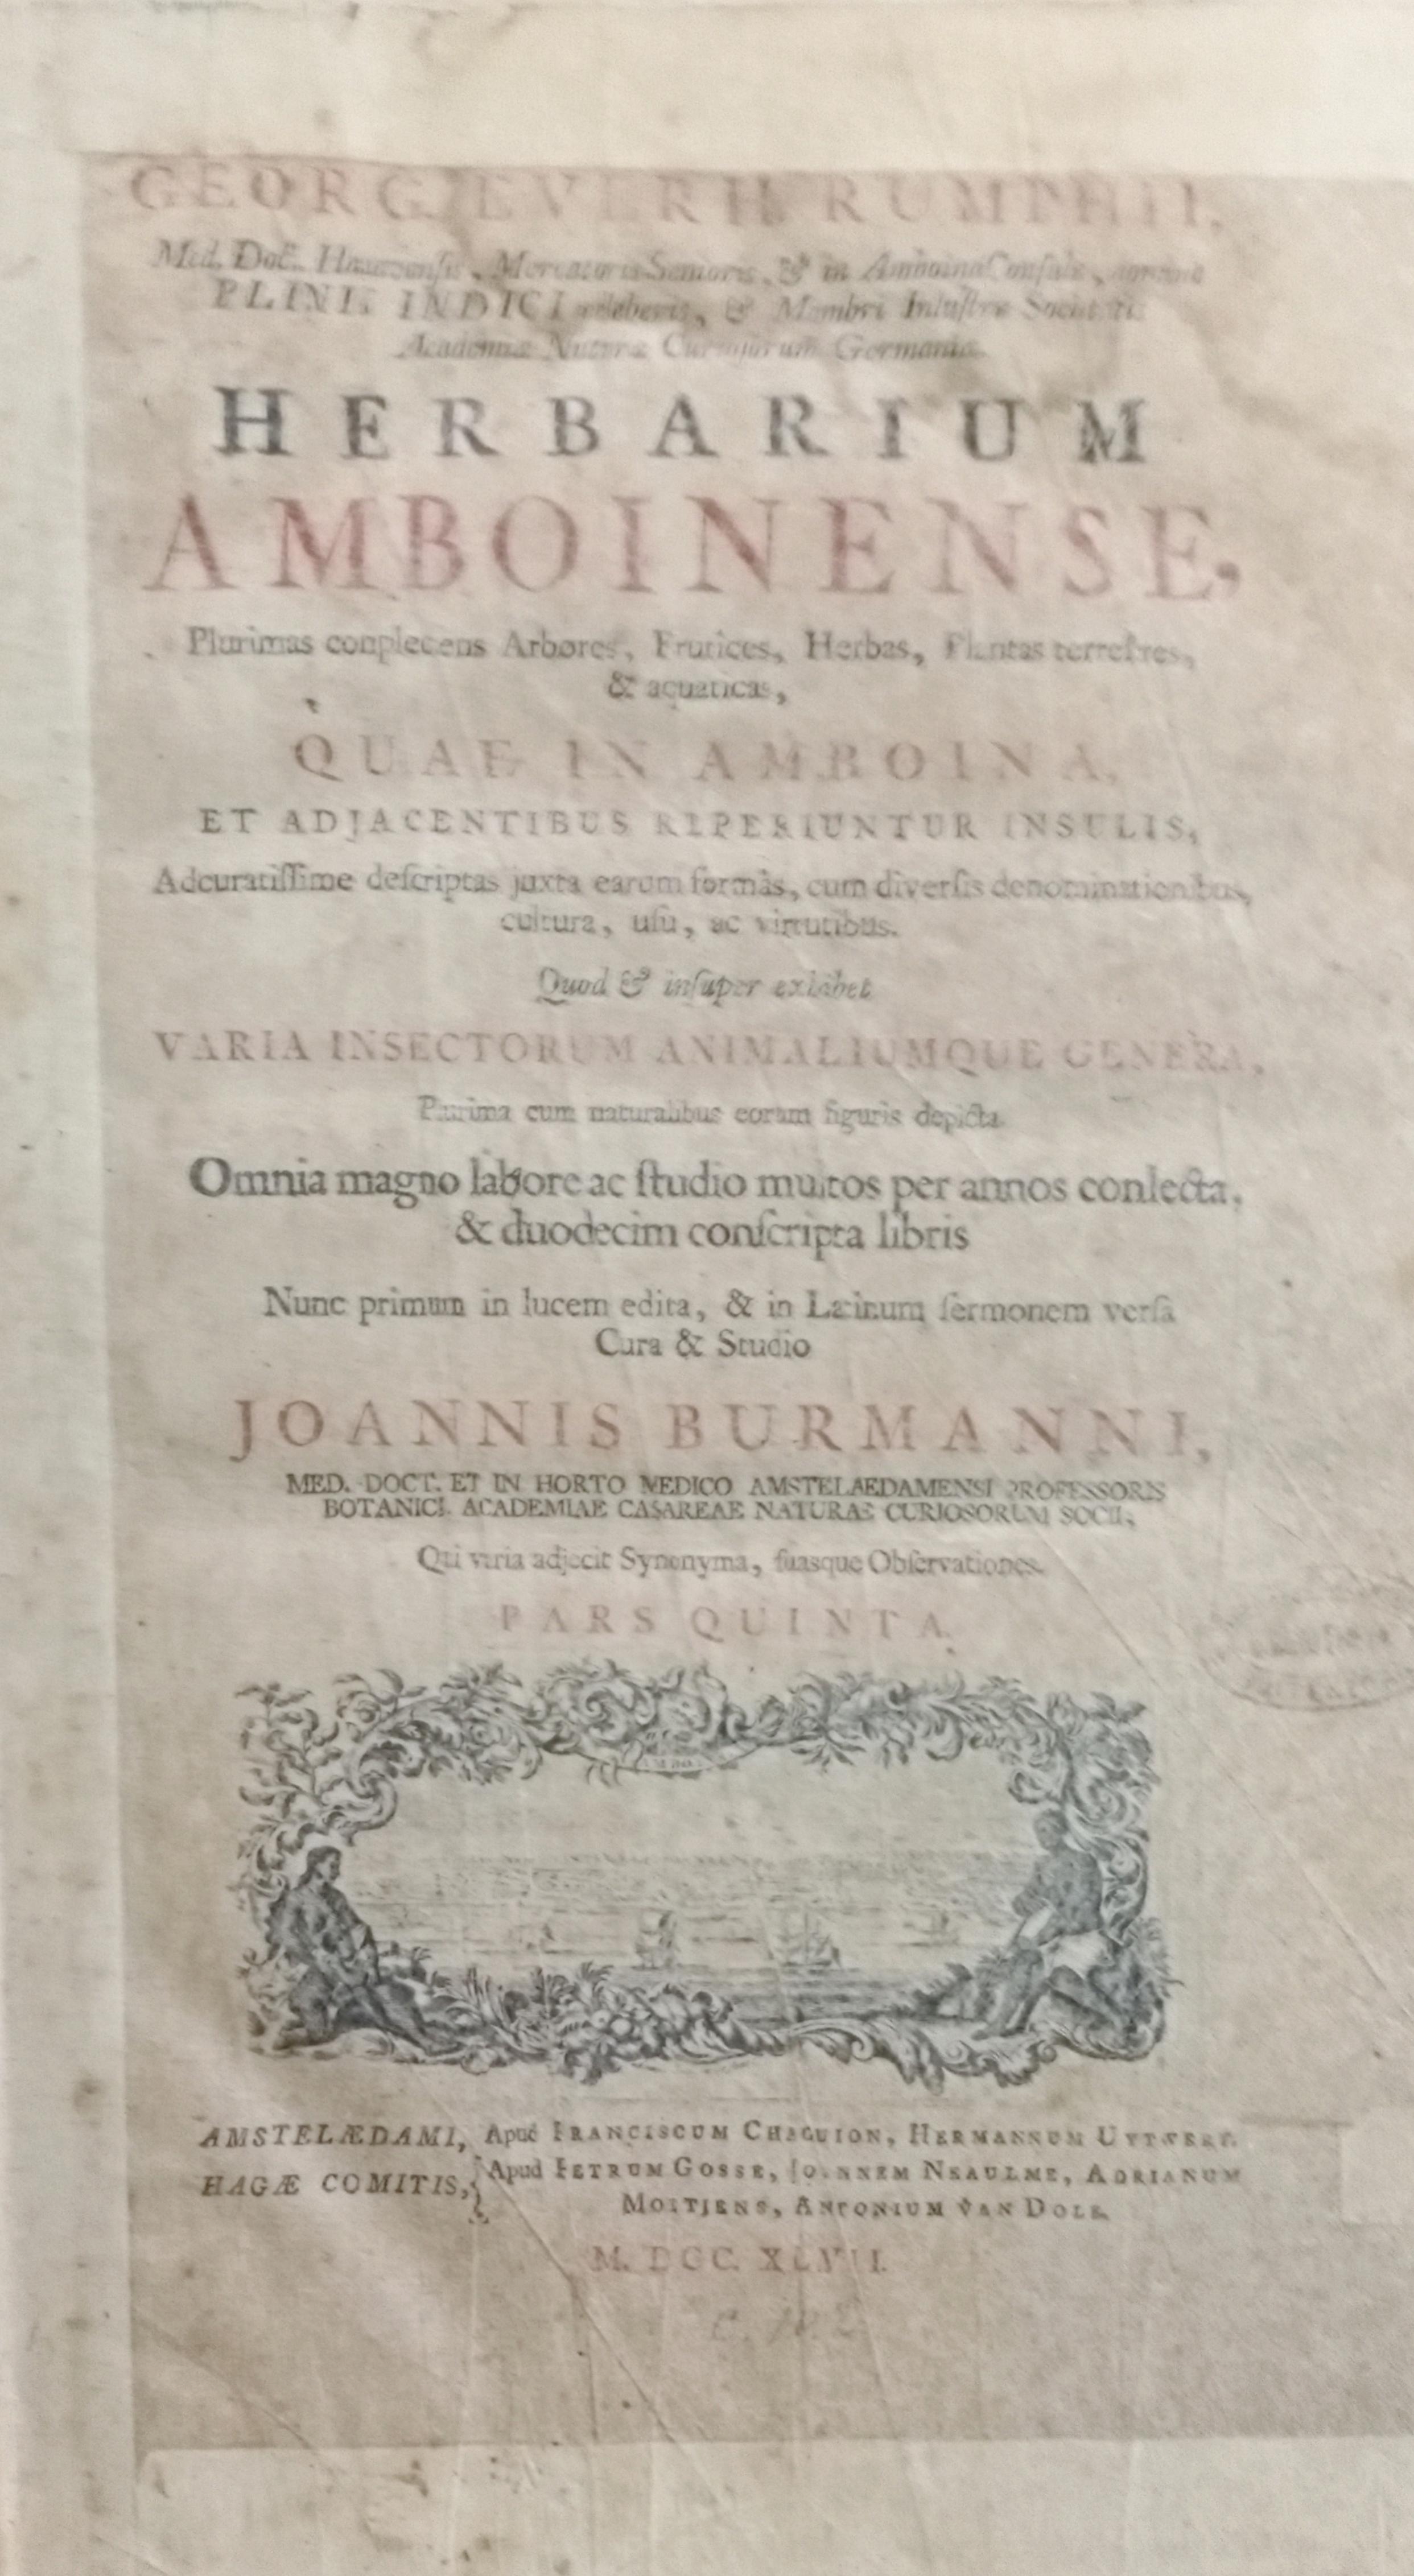 GEORGII EVERH. RUMPHII,
Med. Doct. Hanovensis, Mercatoris Senioris, & in Amboina Consulis,
PLINII INDICI celeberr., & Membri Inlustre Societatis
Academiæ Naturæ Curiosorum Germaniæ
HERBARIUM
AMBOINENSE,
Plurimas conplectens Arbores, Frutices, Herbas, Plantas terrestres,
& aquaticas,
QUAE IN AMBOINA,
ET ADJACENTIBUS REPERIUNTUR INSULIS,
Adcuratiſſime deſcriptas juxta earum formas, cum diverſis denominationibus,
cultura, uſu, ac virtutibus.
Quod & inſuper exhibet
VARIA INSECTORUM ANIMALIUMQUE GENERA,
Plurima cum naturalibus eorum figuris depicta.
Omnia magno labore ac ſtudio multos per annos conlecta,
& duodecim conſcripta libris
Nunc primum in lucem edita, & in Latinum ſermonem verſa
Cura & Studio
JOANNIS BURMANNI,
MED. DOCT. ET IN HORTO MEDICO AMSTELAEDAMENSI PROFESSORIS
BOTANICI. ACADEMIAE CAESAREAE NATURAE CURIOSORUM SOCII,
Qui varia adjecit Synonyma, ſuasque Obſervationes.
PARS QUINTA.
AMSTELÆDAMI, Apud FRANCISCUM CHANGUION, HERMANNUM UYTWERF.
HAGÆ COMITIS, Apud PETRUM GOSSE, JOANNEM NEAULME, ADRIANUM
MOETJENS, ANTONIUM VAN DOLE.
M. DCC. XLVII.